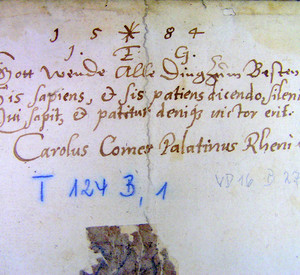 1 5 * 8 4
J. E. G.
Gott Wende Alle Ding zum Besten
Sis sapiens, et sis patiens dicendo, sileni
Qui sapit, et patitur deniq; victor erit
Carolus Comes Palatinus Rheni
T 124 B, 1
VD 16 B 27